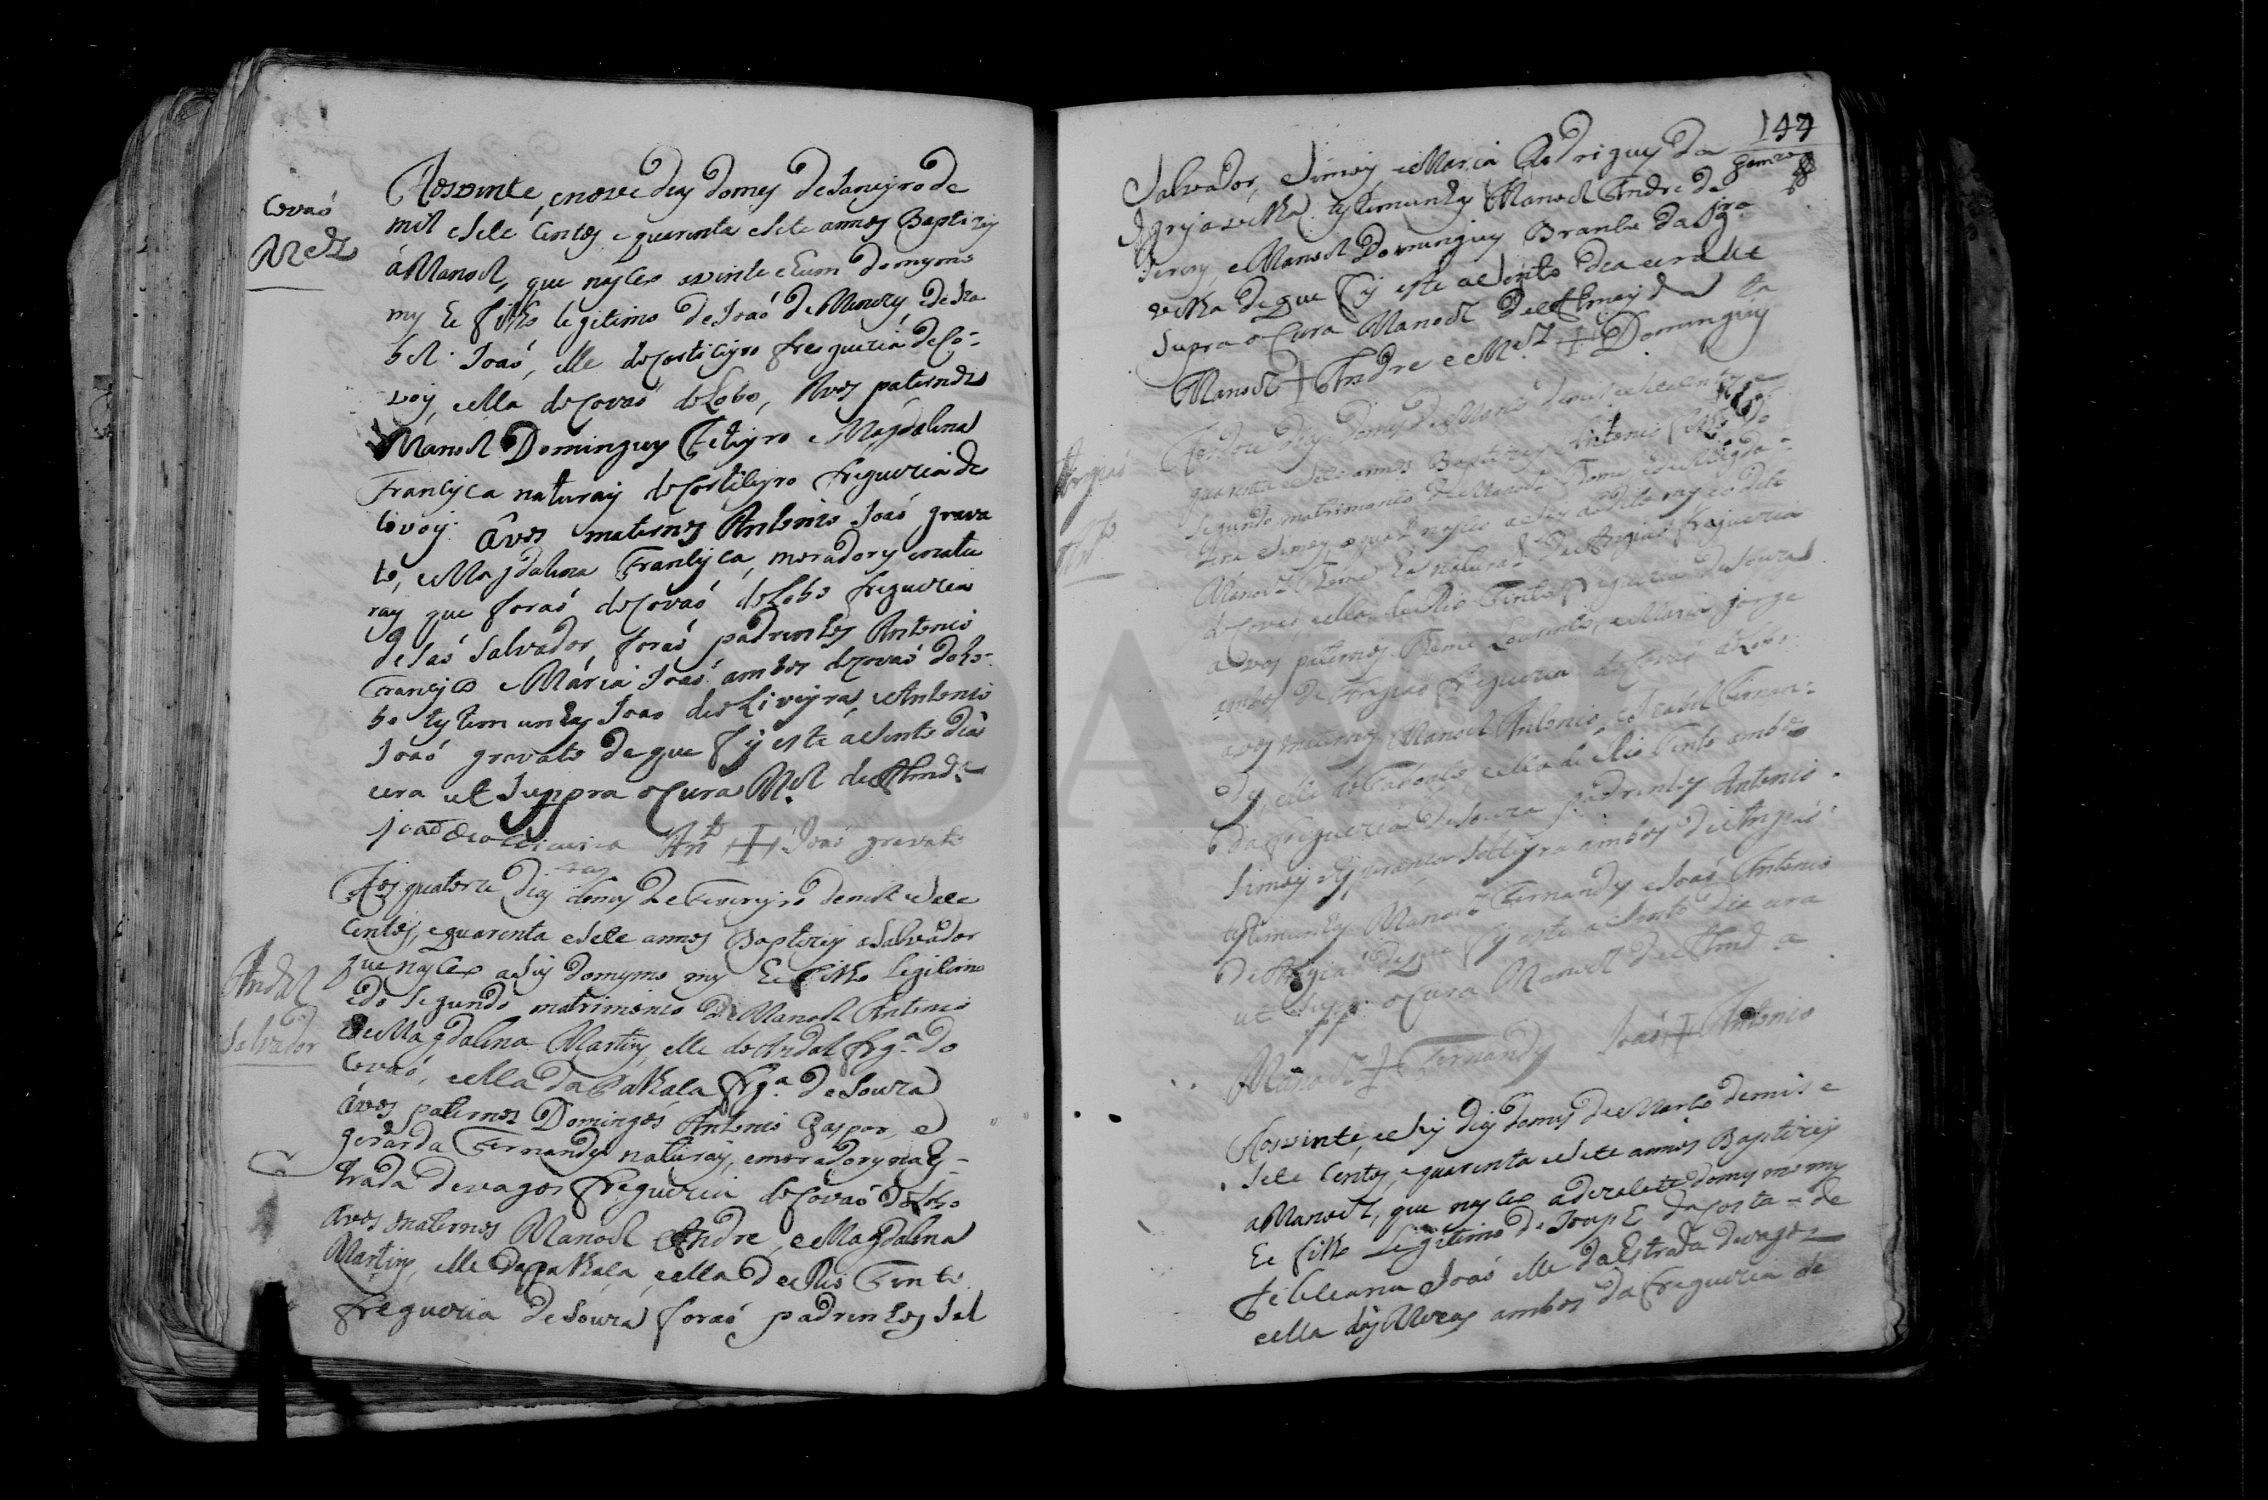 Covaó
Mel
Aos vinte, e nove dias do mes de Janeyro de
mil e sete Centos e quarenta e sete annos Baptizey
á Manoel, que nasceo a vinte e hum do mesmo
mes he filho legitimo de Joaó de Moura e de Iza
bel Joaó, elle do Corticeyro freguezia de Co-
voes, e ella do Covaó do Lobo, Avos paternos
Manoel Domingues e Magdalena
Francisca naturais do Corticeyro freguezia de
Covoes. Avos maternos Antonio Joaó grava
to, e Magdalena Francisca, moradores e natu
rais que foraó do Covaó do Lobo freguezia
de Saó Salvador foraó padrinhos Antonio
Francisco e Maria Joaó ambos do Covaó do Lo-
bo testemunhas Joao de oliveyra e Antonio
Joaó gravato de que fis este asento dia
era ut Suppra o Cura Mel de Almda
joaó de oliveira Anto + Joaó gravato
Andal
Salvador
Aos quatorze dias do mes de Fevereyro de mil e sete
Centos, e quarenta e sete annos Baptizey a Salvador
que nasceo a seis do mesmo mes he filho legitimo
e do segundo matrimonio de Manoel Antonio
e de Magdalena Martins, elle do Andal frga do
Covaó, e ella da Palhaça frga de Souza
avos paternos Domingos Antonio Gaspar, e
gerarda Fernandes naturais, e moradores na Es-
trada de vagos freguezia do Covaó do Lobo
Avos maternos Manoel Andre, e Magdalena
Martins, elle da Palhaça, e ella de Rio Tinto
freguezia de Souza foraó padrinhos Sal
144
Salvador Simois e Maria Rodrigues da
Igreja velha testemunhas Manoel Andre da
e Manoel Domingues Branbe da Igra
velha de que fis este asento dia era ut
supra o Cura Manoel de Almeyda
Manoel + Andre e Mel + Domingues
Angiaó
Anto
Aos doze dias do mes de Março de mil e sete centos e
quarenta e sete annos Baptizey a Antonio filho do
segundo matrimonio de Manoel Tome e de Magda-
lena Simois, o qual nasceo a seis do dito mes o dito
Manoel Tome he natural de Angiaó freguezia
do Covaó e ella de Rio Tinto freguezia de Souza
avos paternos Tome Lourenço, e Maria jorge
ambos de Angiaó freguezia do Covaó do Lobo
avos maternos Manoel Antonio, e Izabel Fernan-
des, elle e ella de Rio Tinto ambos
da freguezia de Souza padrinhos Antonio
Simois e ambos de Angiaó
testemunhas Manoel Fernandes e Joaó Antonio
de Angiaó de que fis este asento dia era
ut supra o Cura Manoel de Almda
Manoel + Fernandes Joaó + Antonio
Aos vinte, e seis dias do mes de Março de mil e
sete Centos, e quarenta e sete annos Baptizey
a Manoel, que nasceo a dezasete do mesmo mes
he filho Legitimo de Joseph da Costa e de
Joaó elle da Estrada de vagos
e ella das ambos da freguezia de